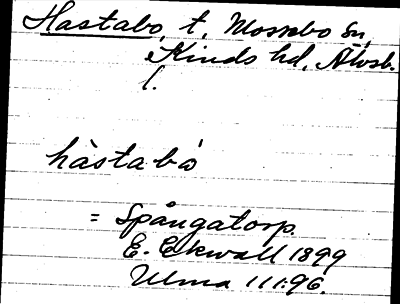 Hastabo, t. Mossebo sn,
Kinds hd, Älvsb.
l.
hàstabò
= Spångatorp
E. Ekwall 1899
Ulma 111:96.